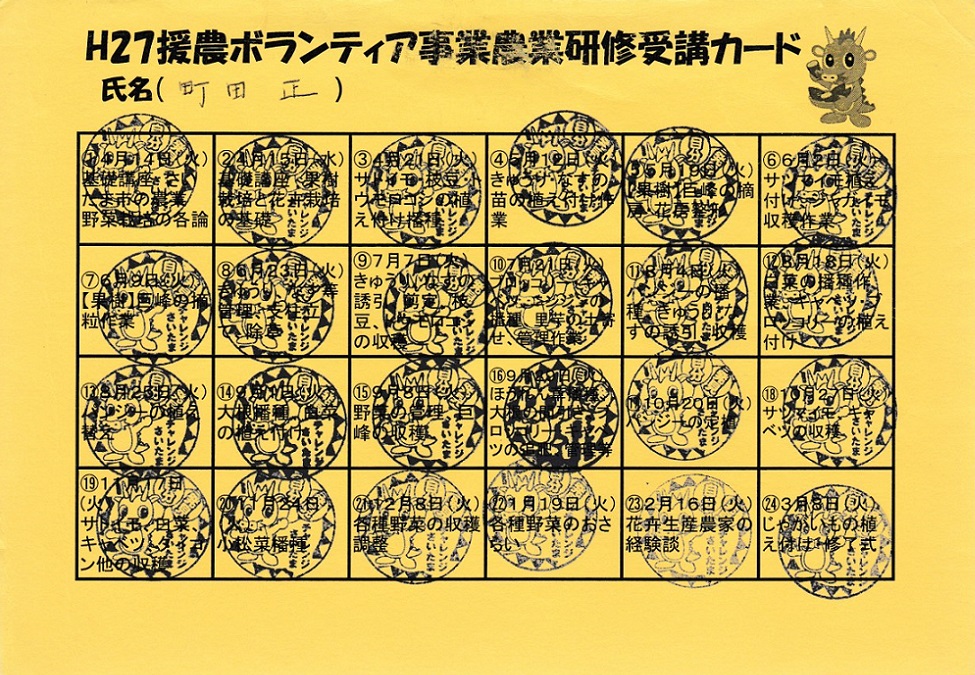 H27援農ボランティア事業農業研修受講カード
氏名(町田 正)
①4月14日(火)
基礎講座 さい
たま市の農業
野菜栽培の各論
②4月15日(水)
基礎講座 果樹
栽培と花卉栽培
の基礎
③4月21日(火)
サトイモ、枝豆、
ウモロコシの植
え付け播種
④5月12日(火)
きゅうり・なすの
苗の植え付け作
業
5月19日(火)
【果樹】巨峰の摘
房、花房整形
⑥6月2日(火)
サツマイモ植え
付け・ジャガイモ
収穫作業
⑦6月9日(火)
【果樹】巨峰の摘
粒作業
⑧6月23日(火)
管理、支柱立
て、除草
⑨7月7日(火)
きゅうり、なすの
誘引、剪定、枝
豆、
の収穫
⑩7月21日(火)
ブロッコリー、キャ
ベツ、
播種、里芋の土寄
せ、管理作業
⑪8月4日(火)
種、きゅうり・な
すの誘引、収穫
⑫8月18日(火)
白菜の播種作
業、キャベツ・ブ
ロッコリーの植え
付け
⑬8月25日(火)
パンジーの植え
替え
⑭9月1日(火)
大根播種、白菜
の植え付け
⑮9月8日(火)
野菜の管理、巨
峰の収穫
⑯9月29日(火)
ほうれん草播種、
大根の間引き、ブ
ロッコリー・キャベ
ツの追肥、管理等
10月20日(火)
パンジーの定植
⑱10月27日(火)
サツマイモ・キャ
ベツの収穫
⑲11月17日
(火)
サトイモ、白菜、
キャベツ、ダイコ
ン他の収穫
⑳11月24日
(火)
小松菜播種
㉑12月8日(火)
各種野菜の収穫
調整
㉒1月19日(火)
各種野菜のおさ
らい
㉓2月16日(火)
花卉生産農家の
経験談
㉔3月8日(火)
じゃがいもの植
え付け・修了式